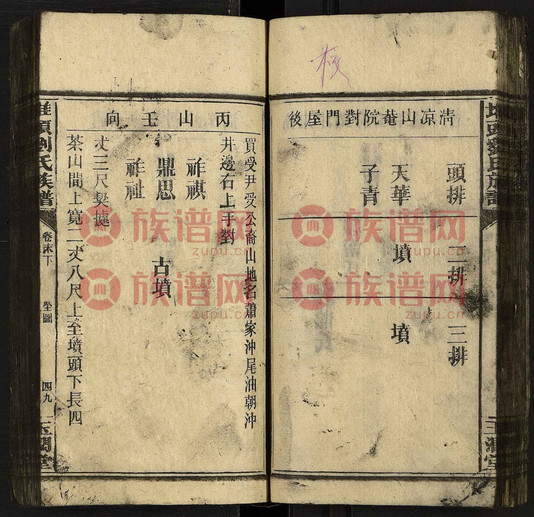 校
清凉山菴院對門屋後
頭排
二排
三排
天華
墳
墳
子青
買受尹受公裔山地名蕭家沖尾油朝沖
井邊右上手對
丙山壬向
祚祺
鼎思
古墳
祚祉
丈三尺契據
茶山間上寬二丈八尺上至墳頭下長四
堆頭劉氏族譜
卷末下
塋圖
四九
玉潤堂
族谱网
zupu.cn